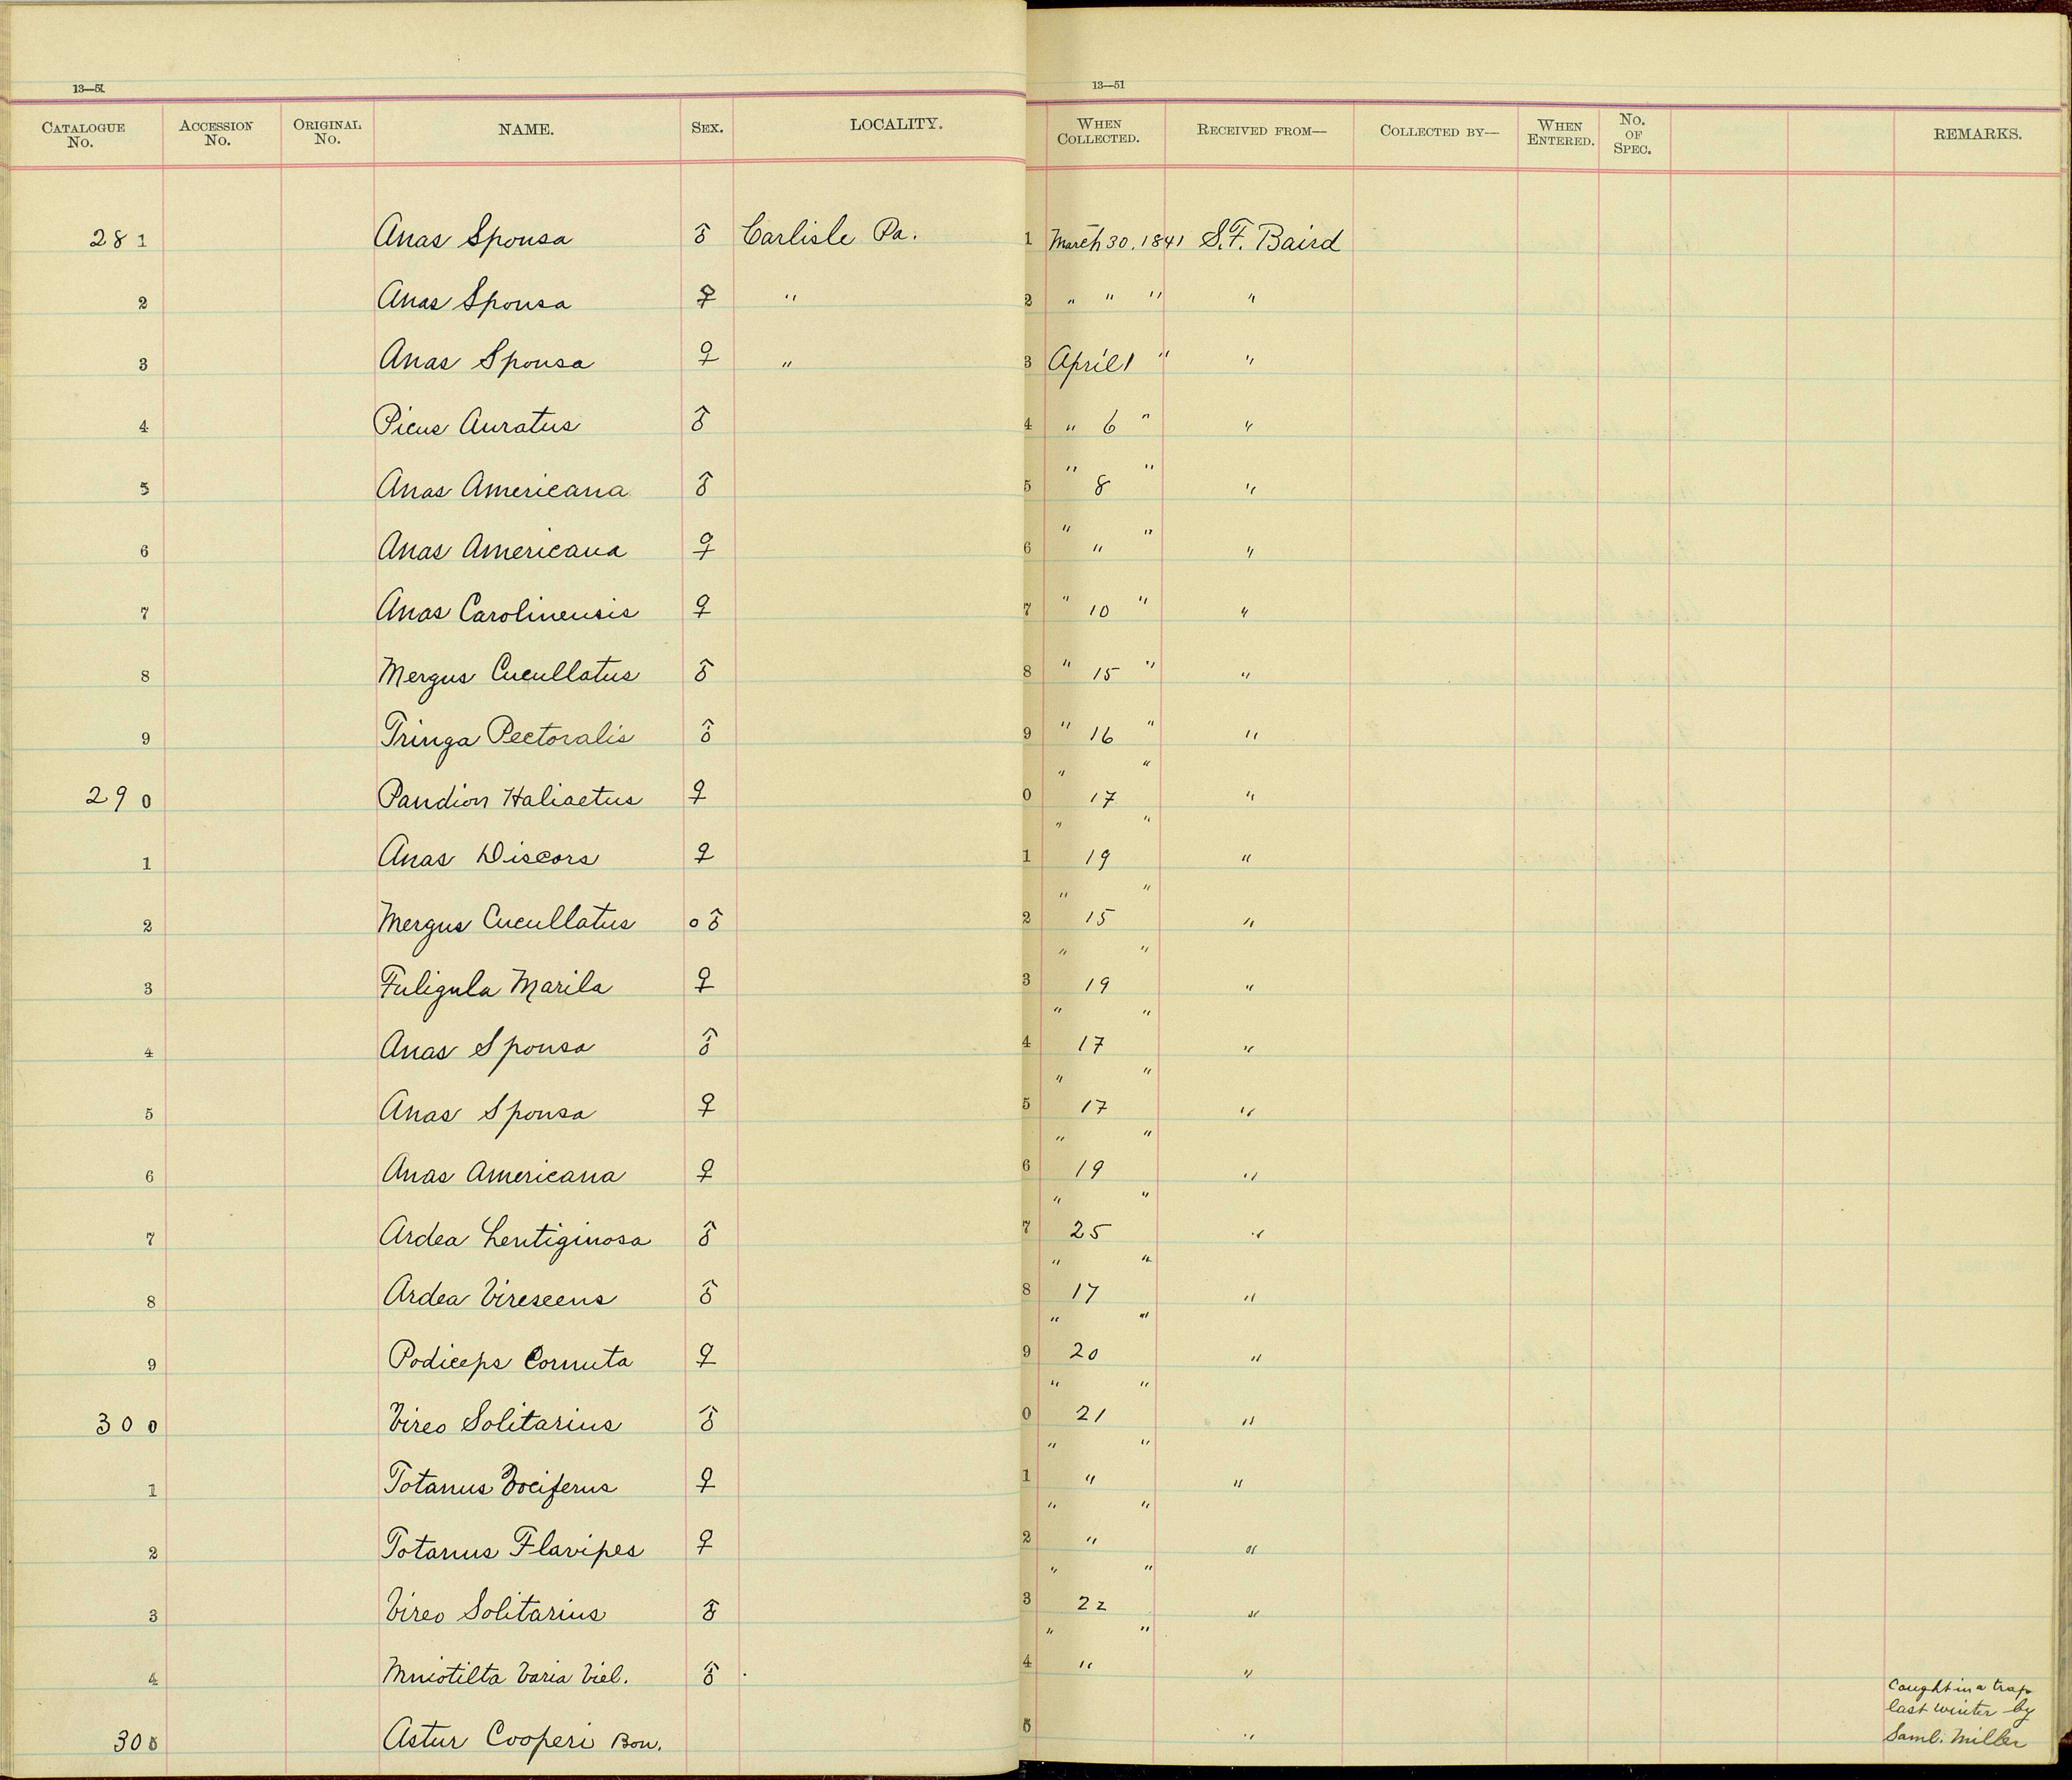 13—51 13—51
CATALOGUE No. ACCESSION No. ORIGINAL No. NAME. SEX. LOCALITY. WHEN COLLECTED. RECEIVED FROM— COLLECTED BY— WHEN ENTERED. No. OF SPEC. REMARKS.
281 Anas Sponsa ♂ Carlisle Pa. 1 March 30, 1841 S.F. Baird
2 Anas Sponsa ♀ " 2 " " " "
3 Anas Sponsa ♀ " 3 April 1 " "
4 Picus Auratus ♂ 4 " 6 " "
5 Anas Americana ♂ 5 " 8 " "
6 Anas Americana ♀ 6 " " " "
7 Anas Carolinensis ♀ 7 " 10 " "
8 Mergus Cucullatus ♂ 8 " 15 " "
9 Tringa Pectoralis ♂ 9 " 16 " "
290 Pandion Haliaetus ♀ 0 " 17 " "
1 Anas Discors ♀ 1 " 19 " "
2 Mergus Cucullatus o ♂ 2 " 15 " "
3 Fuligula Marila ♀ 3 " 19 " "
4 Anas Sponsa ♂ 4 " 17 " "
5 Anas Sponsa ♀ 5 " 17 " "
6 Anas Americana ♀ 6 " 19 " "
7 Ardea Lentiginosa ♂ 7 " 25 " "
8 Ardea Virescens ♂ 8 " 17 " "
9 Podiceps Cornuta ♀ 9 " 20 " "
300 Vireo Solitarius ♂ 0 " 21 " "
1 Totanus Vociferus ♀ 1 " " " "
2 Totanus Flavipes ♀ 2 " " " "
3 Vireo Solitarius ♂ 3 " 22 " "
4 Mniotilta Varia Viel. ♂ 4 " " " "
305 Astur Cooperi Bon. 5 " Caught in a trap
last winter by
Saml. Miller